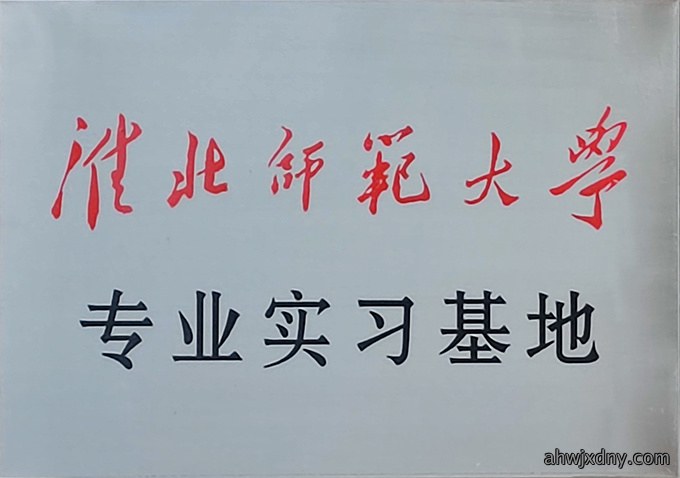 淮北师範大學
专业实习基地
ahwjxdny.com